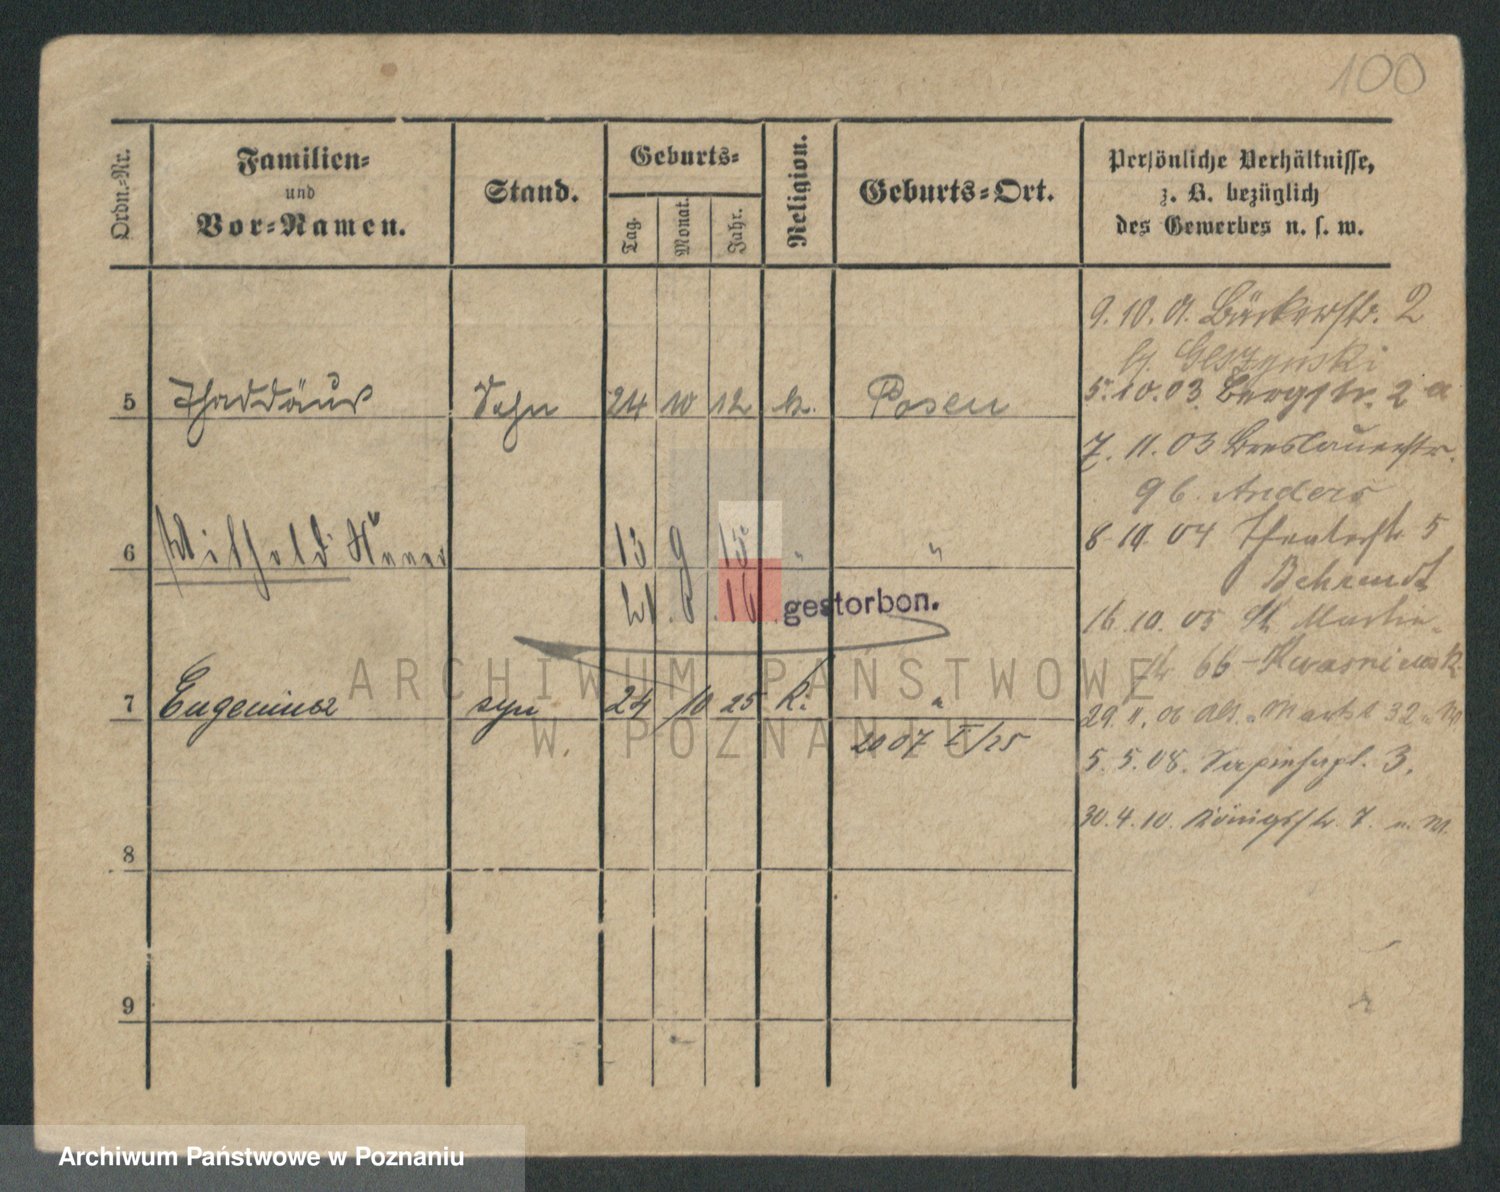 100
Ordn.-Nr.
Familien-
und
Vor-Namen.
Stand.
Geburts-
Tag.
Monat.
Jahr.
Religion.
Geburts-Ort.
Persönliche Verhältnisse,
z. B. bezüglich
des Gewerbes u. s. w.
9. 10. 01. Bäckerstr. 2
5. 10. 03. Bergstr. 2a
5 Thaddäus Sohn 24 10 12 k. Posen
7. 11. 03 Breslauerstr.
9 b. Anders
6 Withold 13 9 15 " "
8 10. 04 Theaterstr 5
Behrendt
21. 6. 16. gestorben.
16. 10. 05 St Martin
66 Kwasniewski
7 Eugeniusz syn 24/10 25 k. "
2007 /25
29. 11. 06 Alt. Markt 32
5. 5. 08. Sapiehapl. 3.
30. 4. 10. Königsstr. 7.
8
9
ARCHIWUM PAŃSTWOWE
W POZNANIU
Archiwum Państwowe w Poznaniu